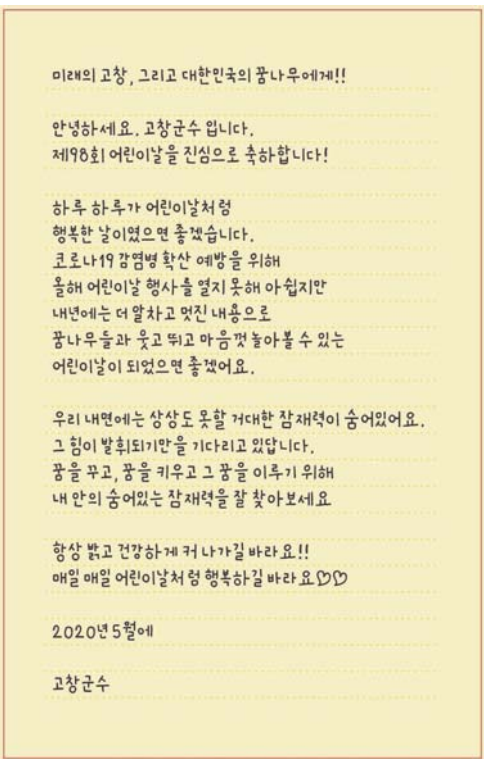 미래의 고창, 그리고 대한민국의 꿈나무에게!!
안녕하세요. 고창군수 입니다.
제98회 어린이날을 진심으로 축하합니다!
하루 하루가 어린이날처럼
행복한 날이였으면 좋겠습니다.
코로나19 감염병 확산 예방을 위해
올해 어린이날 행사를 열지 못해 아쉽지만
내년에는 더 알차고 멋진 내용으로
꿈나무들과 웃고 뛰고 마음껏 놀아볼 수 있는
어린이날이 되었으면 좋겠어요.
우리 내면에는 상상도 못할 거대한 잠재력이 숨어있어요.
그 힘이 발휘되기만을 기다리고 있답니다.
꿈을 꾸고, 꿈을 키우고 그 꿈을 이루기 위해
내 안의 숨어있는 잠재력을 잘 찾아보세요
항상 밝고 건강하게 커 나가길 바라요!!
매일 매일 어린이날처럼 행복하길 바라요♡♡
2020년 5월에
고창군수